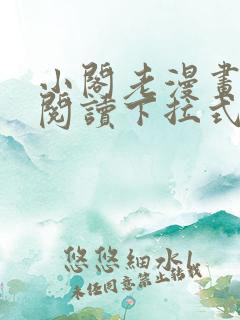 小閣老漫畫
閱讀下拉式
悠悠細水l
未经同意禁止转载